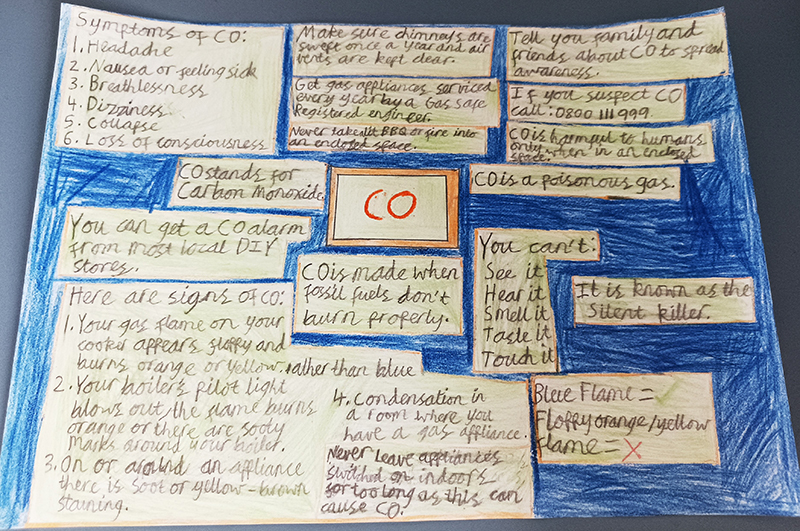 Symptoms of CO:
1. Headache
2. Nausea or feeling sick
3. Breathlessness
4. Dizziness
5. Collapse
6. Loss of consciousness
Make sure chimneys are
swept once a year and air
vents are kept clear.
Get gas appliances serviced
every year by a Gas Safe
Registered engineer.
Never take a lit BBQ or fire into
an enclosed space.
Tell you family and
friends about CO to spread
awareness.
If you suspect CO
call: 0800 111 999.
CO is harmful to humans
only when in an enclosed
space.
CO stands for
Carbon Monoxide
CO
CO is a poisonous gas.
You can get a CO alarm
from most local DIY
stores.
CO is made when
fossil fuels don't
burn properly.
You can't:
See it
Hear it
Smell it
Taste it
Touch it
It is known as the
Silent killer.
Here are signs of CO:
1. Your gas flame on your
cooker appears floppy and
burns orange or yellow. rather than blue
2. Your boilers pilot light
blows out/the flame burns
orange or there are sooty
marks around your boiler.
3. On or around an appliance
there is soot or yellow-brown
staining.
4. Condensation in
a room where you
have a gas appliance.
Never leave appliances
switched on indoors
for too long as this can
cause CO.
Blue Flame = ✓
Floppy orange/yellow
flame = X